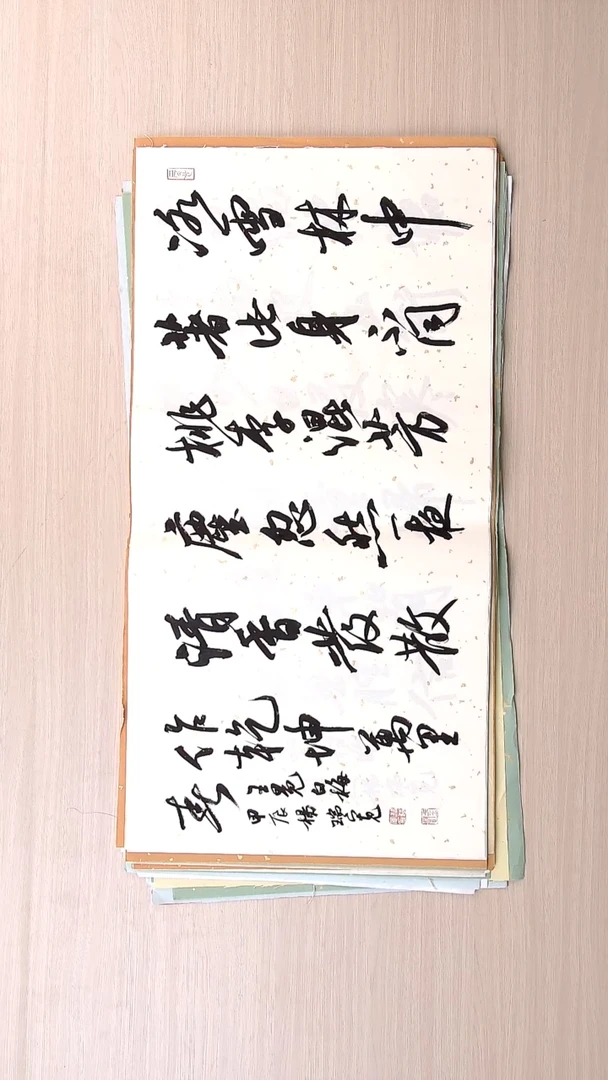 冰雪林中
著此身不同
桃李混芳
塵忽然一夜
清香發散
作乾坤萬里
春
王冕白梅
甲辰楊瑞